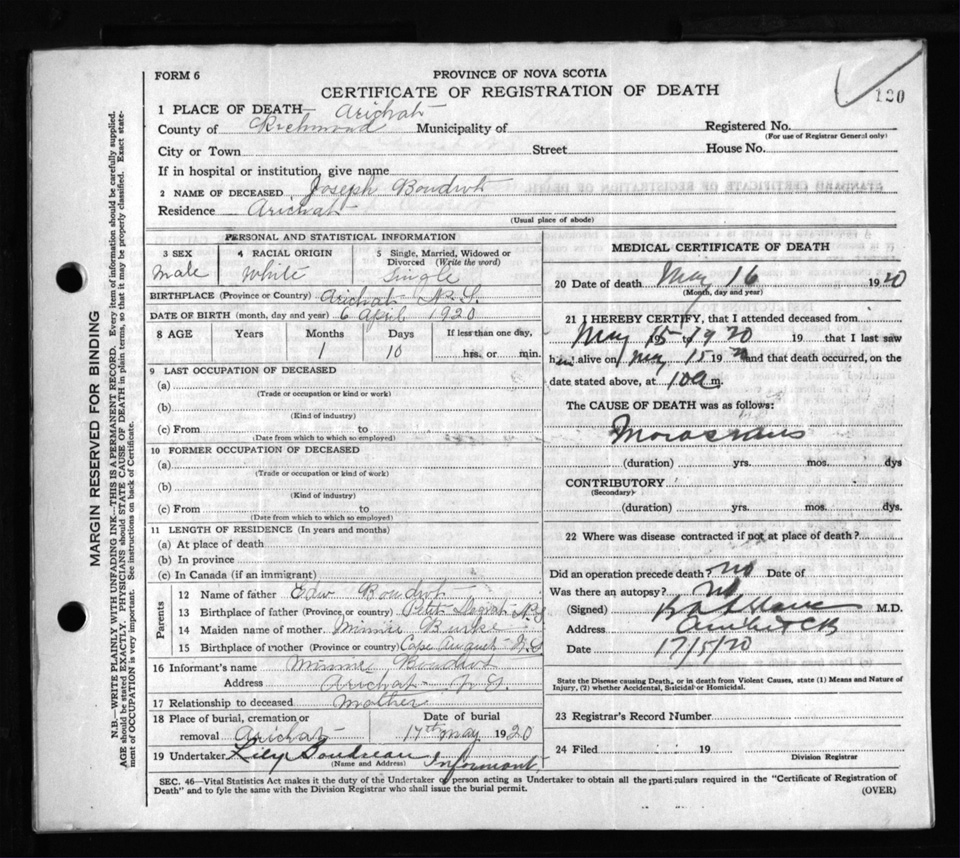 FORM 6
PROVINCE OF NOVA SCOTIA
CERTIFICATE OF REGISTRATION OF DEATH
120
1 PLACE OF DEATH— Arichat
County of Richmond Municipality of Registered No.
(For use of Registrar General only)
City or Town Street House No.
If in hospital or institution, give name
2 NAME OF DECEASED Joseph Boudrot
Residence Arichat
(Usual place of abode)
PERSONAL AND STATISTICAL INFORMATION
3 SEX 4 RACIAL ORIGIN 5 Single, Married, Widowed or Divorced (Write the word)
Male White Single
BIRTHPLACE (Province or Country) Arichat N.S.
DATE OF BIRTH (month, day and year) 6 April 1920
8 AGE Years Months Days If less than one day,
1 10 hrs. or min.
9 LAST OCCUPATION OF DECEASED
(a)
(Trade or occupation or kind or work)
(b)
(Kind of industry)
(c) From to
(Date from which to which so employed)
10 FORMER OCCUPATION OF DECEASED
(a)
(Trade or occupation or kind of work)
(b)
(Kind of industry)
(c) From to
(Date from which to which so employed)
11 LENGTH OF RESIDENCE (In years and months)
(a) At place of death
(b) In province
(c) In Canada (if an immigrant)
Parents
12 Name of father Edw Boudrot
13 Birthplace of father (Province or country) Petit N.S
14 Maiden name of mother Minnie Burke
15 Birthplace of mother (Province or country) Cape August N.S
16 Informant's name Minnie Boudrot
Address Arichat N.S.
17 Relationship to deceased Mother
18 Place of burial, cremation or removal Arichat
Date of burial 17th May 1920
19 Undertaker Lily Boudreau Informant
(Name and Address)
MEDICAL CERTIFICATE OF DEATH
20 Date of death May 16 1920
(Month, day and year)
21 I HEREBY CERTIFY, that I attended deceased from
May 15-1920 19 that I last saw
him alive on May 15 1920 and that death occurred, on the
date stated above, at 10 a m.
The CAUSE OF DEATH was as follows:
(duration) yrs. mos. dys
CONTRIBUTORY
(Secondary)
(duration) yrs. mos. dys.
22 Where was disease contracted if not at place of death?
Did an operation precede death? No Date of
Was there an autopsy? No
(Signed) M.D.
Address
Date 17/5/20
State the Disease causing Death, or in death from Violent Causes, state (1) Means and Nature of
Injury, (2) whether Accidental, Suicidal or Homicidal.
23 Registrar's Record Number
24 Filed 19
Division Registrar
SEC. 46—Vital Statistics Act makes it the duty of the Undertaker or person acting as Undertaker to obtain all the particulars required in the "Certificate of Registration of
Death" and to fyle the same with the Division Registrar who shall issue the burial permit.
(OVER)
MARGIN RESERVED FOR BINDING
N.B.—WRITE PLAINLY WITH UNFADING INK—THIS IS A PERMANENT RECORD. Every item of information should be carefully supplied.
AGE should be stated EXACTLY. PHYSICIANS should STATE CAUSE OF DEATH in plain terms, so that it may be properly classified. Exact state-
ment of OCCUPATION is very important. See instructions on back of Certificate.